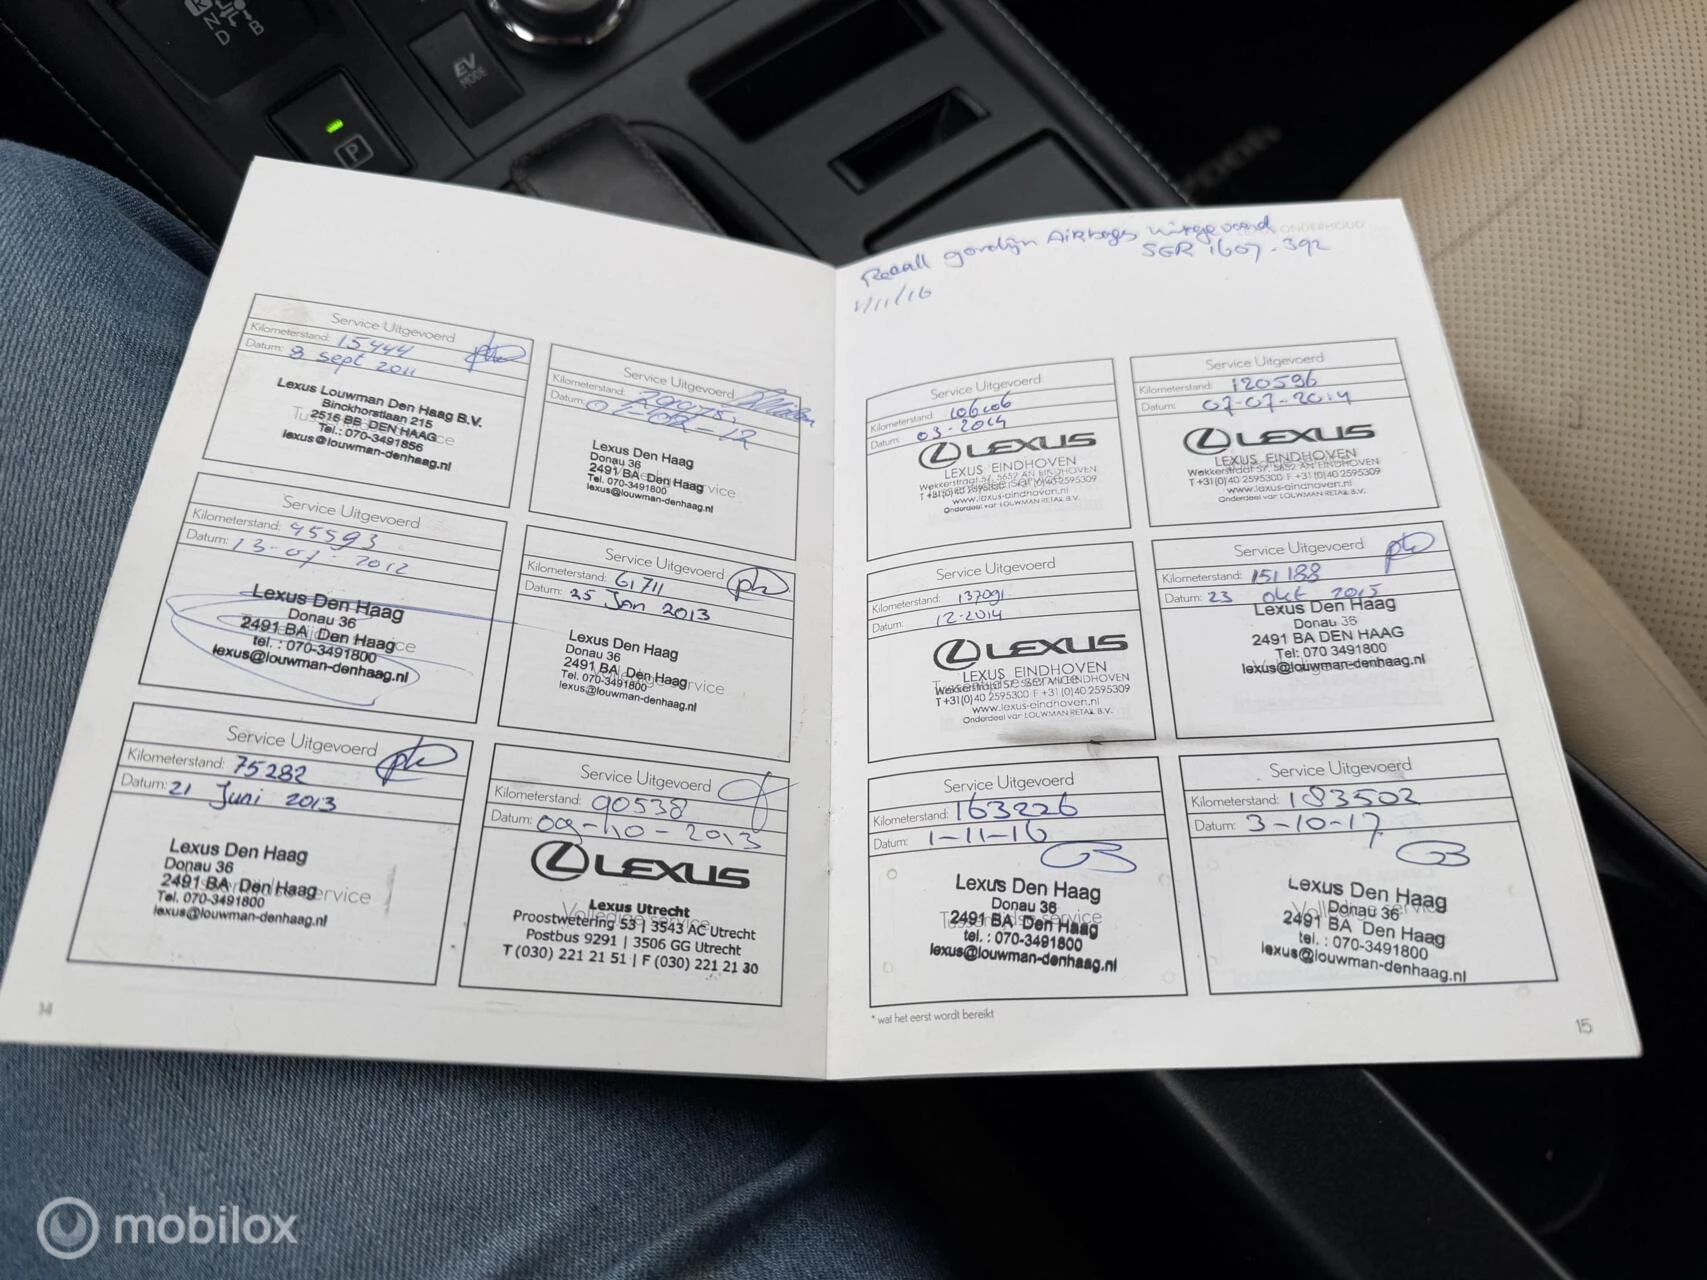 R
N
D
B
EV
MODE
P
Service Uitgevoerd
Kilometerstand: 15444
Datum: 8 sept 2011
Lexus Louwman Den Haag B.V.
Binckhorstlaan 215
2516 BB DEN HAAG
Tel.: 070-3491856
lexus@louwman-denhaag.nl
Service Uitgevoerd
Kilometerstand:
Datum:
Lexus Den Haag
Donau 36
2491 BA Den Haag
Tel. 070-3491800
lexus@louwman-denhaag.nl
Service Uitgevoerd
Kilometerstand: 45593
Datum: 13-07-2012
Lexus Den Haag
Donau 36
2491 BA Den Haag
tel. : 070-3491800
lexus@louwman-denhaag.nl
Service Uitgevoerd
Kilometerstand: 61711
Datum: 25 Jan 2013
Lexus Den Haag
Donau 36
2491 BA Den Haag
Tel. 070-3491800
lexus@louwman-denhaag.nl
Service Uitgevoerd
Kilometerstand: 75282
Datum: 21 Juni 2013
Lexus Den Haag
Donau 36
2491 BA Den Haag
Tel. 070-3491800
lexus@louwman-denhaag.nl
Service Uitgevoerd
Kilometerstand: 90538
Datum: 09-10-2013
LEXUS
Lexus Utrecht
Volledige service
Proostwetering 53 | 3543 AC Utrecht
Postbus 9291 | 3506 GG Utrecht
T (030) 221 21 51 | F (030) 221 21 30
14
ONDERHOUD
Recall gordijn Airbags uitgevoerd
SGR 1607-392
1/11/16
Service Uitgevoerd
Kilometerstand: 106606
Datum: 03-2014
LEXUS
LEXUS EINDHOVEN
Wekkerstraat 57, 5652 AN EINDHOVEN
T +31(0)40 2595300 F +31(0)40 2595309
www.lexus-eindhoven.nl
Onderdeel van LOUWMAN RETAIL B.V.
Service Uitgevoerd
Kilometerstand: 120596
Datum: 07-07-2014
LEXUS
LEXUS EINDHOVEN
Wekkerstraat 57, 5652 AN EINDHOVEN
T +31(0)40 2595300 F +31(0)40 2595309
www.lexus-eindhoven.nl
Onderdeel van LOUWMAN RETAIL B.V.
Service Uitgevoerd
Kilometerstand: 137091
Datum: 12-2014
LEXUS
LEXUS EINDHOVEN
Wekkerstraat 57, 5652 AN EINDHOVEN
T +31(0)40 2595300 F +31(0)40 2595309
www.lexus-eindhoven.nl
Onderdeel van LOUWMAN RETAIL B.V.
Service Uitgevoerd
Kilometerstand: 151188
Datum: 23 okt 2015
Lexus Den Haag
Donau 36
2491 BA DEN HAAG
Tel: 070 3491800
lexus@louwman-denhaag.nl
Service Uitgevoerd
Kilometerstand: 163226
Datum: 1-11-16
Lexus Den Haag
Donau 36
Tussentijdse service
2491 BA Den Haag
tel. : 070-3491800
lexus@louwman-denhaag.nl
Service Uitgevoerd
Kilometerstand: 183502
Datum: 3-10-17
Lexus Den Haag
Volledige service
Donau 36
2491 BA Den Haag
tel. : 070-3491800
lexus@louwman-denhaag.nl
* wat het eerst wordt bereikt
15
mobilox